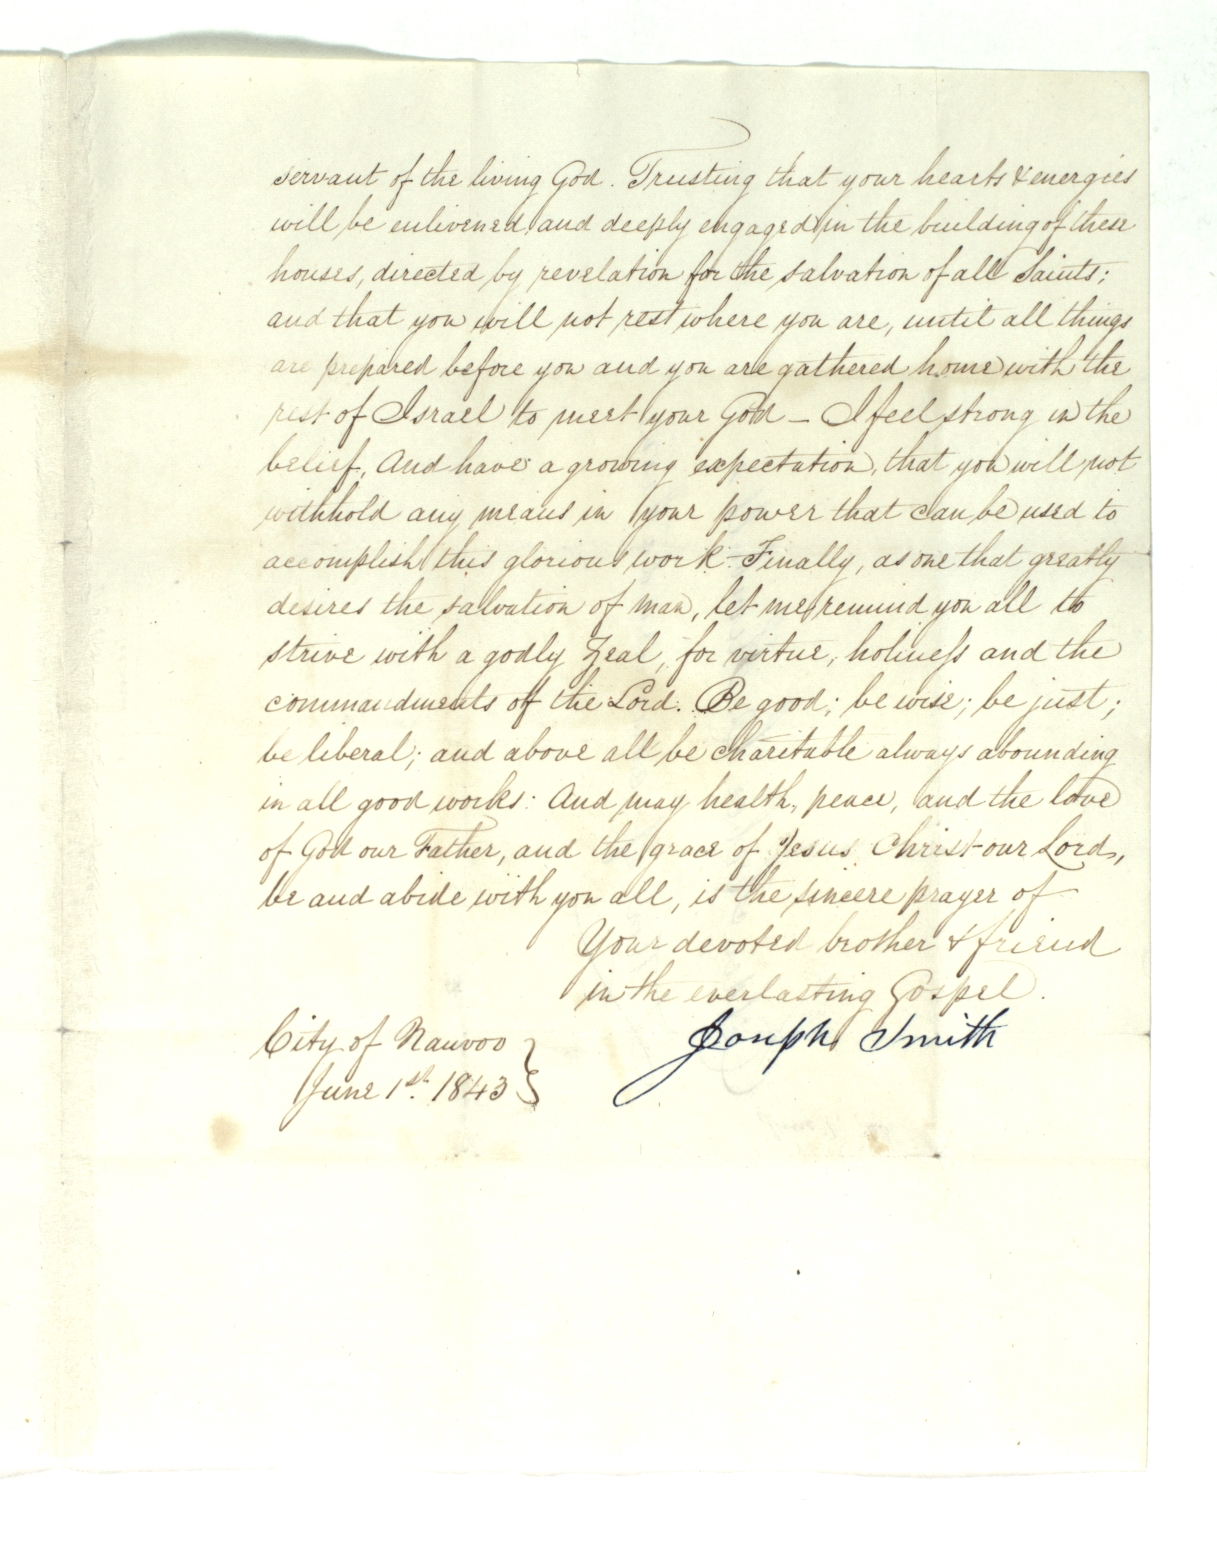 servant of the living God. Trusting that your hearts & energies
will be enlivened and deeply engaged in the building of these
houses, directed by revelation for the salvation of all Saints;
and that you will not rest where you are, until all things
are prepared before you and you are gathered home with the
rest of Israel to meet your God – I feel strong in the
belief, And have a growing expectation, that you will not
withhold any means in your power that can be used to
accomplish this glorious work – Finally, as one that greatly
desires the salvation of man, let me remind you all to
strive with a godly zeal, for virtue, holiness and the
commandments of the Lord. Be good; be wise; be just;
be liberal; and above all be charitable always abounding
in all good works: And may health, peace, and the love
of God our Father, and the grace of Jesus Christ our Lord,
be and abide with you all, is the sincere prayer of
Your devoted brother & friend
in the everlasting Gospel.
Joseph Smith
City of Nauvoo
June 1st. 1843